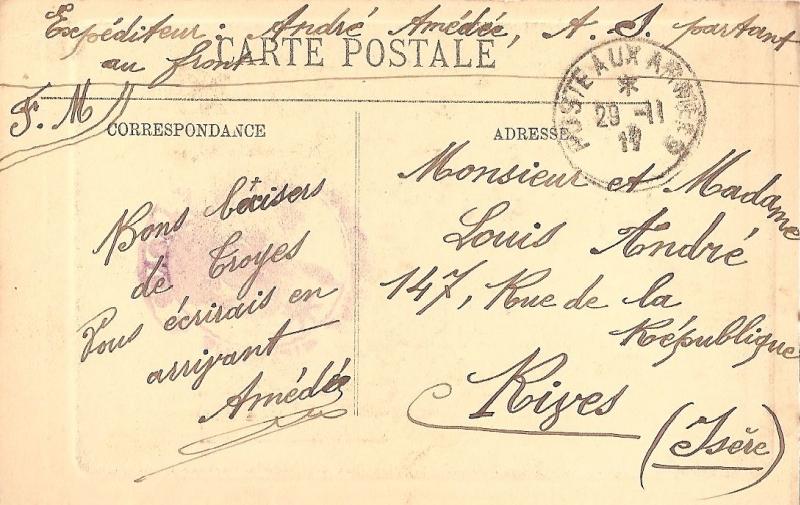 Expéditeur : André Amédée, A. S. partant
au front
CARTE POSTALE
F. M
POSTE AUX ARMEES
29 -11
17
CORRESPONDANCE
ADRESSE
Bons baisers
de Troyes
Vous écrirais en
arrivant
Amédée
Monsieur et Madame
Louis André
147, Rue de la
République
Rives
(Isère)